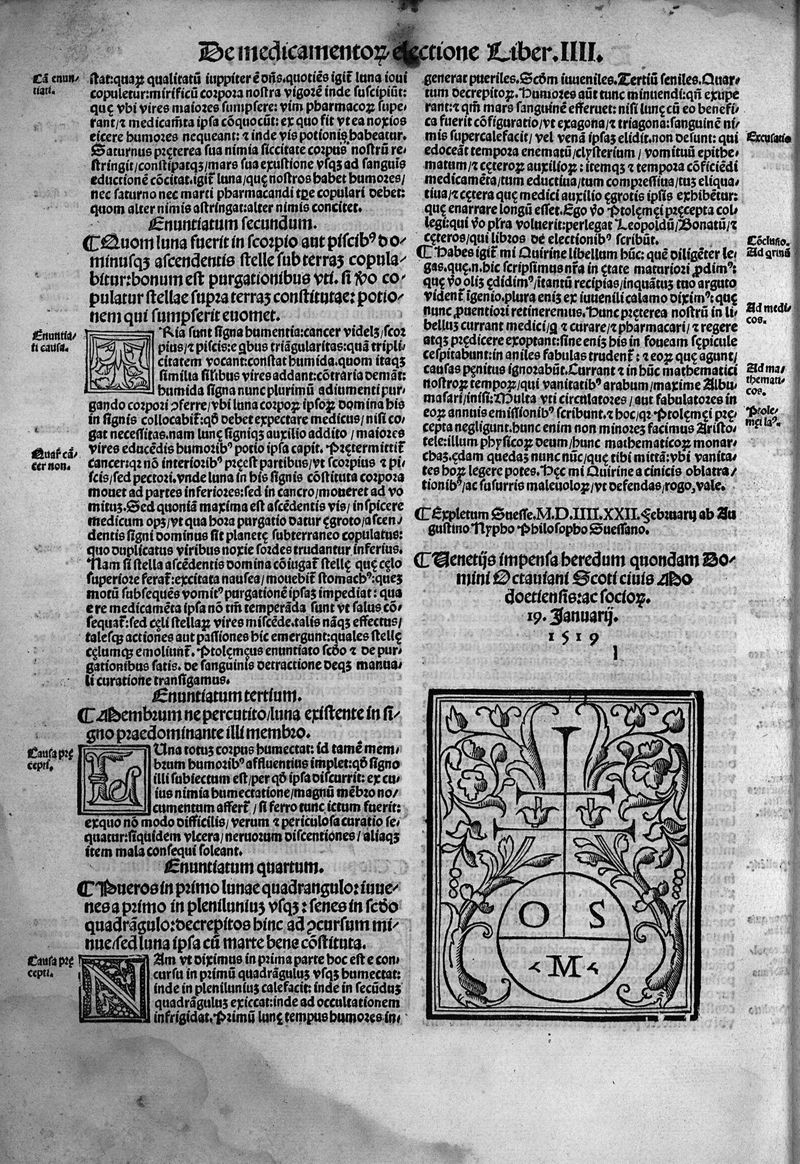 De medicamentoꝝ electione Liber.IIII.
Cā enun-
tiati.
stat:quaꝝ qualitatū iuppiter ē dñs.quotiēs igit̃ luna ioui
copuletur:mirificū corpora nostra vigorē inde suscipiūt:
quę vbi vires maiores sumpsere: vim pharmacoꝝ supe-
rant/⁊ medicamēta ipsa cōquocūt: ex quo fit vt ea noxios
eicere humores nequeant: ⁊ inde vis potionis habeatur.
Saturnus pręterea sua nimia siccitate corpus nostrū re-
stringit/constipatqꝫ/mars sua exustione vsqꝫ ad sanguis
eductionē cōcitat.igit̃ luna/quę nostros habet humores/
nec saturno nec marti pharmacandi tp̄e copulari debet:
quom alter nimis astringat:alter nimis concitet.
Enuntiatum secundum.
¶Quom luna fuerit in scorpio aut piscibꝰ do-
minusqꝫ ascendentis stelle sub terraꝫ copula-
bitur:bonum est purgationibus vti. si ꝟo co-
pulatur stellae supra terraꝫ constitutae: potio-
nem qui sumpserit euomet.
Enuntia-
ti causa.
TRia sunt signa humentia:cancer videlꝫ/scor
pius/⁊ pisces: e qbus triāgularitas:quā tripli
citatem vocant:constat humida.quom itaqꝫ
similia silibus vires addant:cōtraria demāt:
humida signa nunc plurimū adiumenti pur
gando corpori ꝯferre/vbi luna corpoꝝ ipsoꝝ domina his
in signis collocabit̃: qō debet expectare medicus/nisi co-
gat necessitas.nam lunę signiqꝫ auxilio addito / maiores
vires educēdis humoribꝰ potio ipsa capit. Prętermittit̃
Quar̃ cā-
cer non.
cancer:qꝛ nō interioribꝰ pręest partibus/vt scorpius ⁊ pi-
scis/sed pectori.vnde luna in his signis cōstituta corpora
mouet ad partes inferiores: sed in cancro/moueret ad vo
mituꝫ. Sed quoniā maxima est ascēdentis vis/inspicere
medicum opꝫ/vt qua hora purgatio datur ęgroto/ascen-
dentis signi dominus sit planetę subterraneo copulatus:
quo duplicatus viribus noxie sordes trudantur inferius.
Nam si stella ascēdentis domina cōiugat̃ stellę quę cęlo
superiore ferat̃: excitata nausea/mouebit̃ stomachꝰ:quez
motū subsequēs vomitꝰ purgationē ipsaꝫ impediat: qua
ere medicamēta ipsa nō tm̄ temperāda sunt vt salus cō-
sequat̃: sed cęli stellaꝝ vires miscēde.talis nāqꝫ effectus/
talesqꝫ actiones aut passiones hic emergunt:quales stellę
cęlumqꝫ emoliunt̃. Ptolęmęus enuntiato scdo ⁊ de pur-
gationibus satis. de sanguinis detractione deqꝫ manua-
li curatione transigamus.
Enuntiatum tertium.
¶Membrum ne percutito/luna existente in si-
gno praedominante illi membro.
Causa prę
cepti.
LUna totus corpus humectat: id tamē mem-
brum humoribꝰ affluentius implet:qō signo
illi subiectum est/per qō ipsa discurrit: ex cu-
ius nimia humectatione/magnū mēbro no-
cumentum affert̃ / si ferro tunc ictum fuerit:
exquo nō modo difficilis/ verum ⁊ periculosa curatio se-
quatur:siquidem vlcera/neruorum discentiones/aliaqꝫ
item mala consequi soleant.
Enuntiatum quartum.
¶Pueros in primo lunae quadrangulo: iuue-
nes a primo in pleniluniuꝫ vsqꝫ: senes in scdo
quadrāgulo:decrepitos hinc ad ꝯcursum mi-
nue/sed luna ipsa cū marte bene cōstituta.
Causa prę
cepti.
NAm vt diximus in prima parte hoc est e con-
cursu in primū quadrāguluꝫ vsqꝫ humectat:
inde in pleniluniuꝫ calefacit: inde in secūduꝫ
quadrāguluꝫ exiccat:inde ad occultationem
infrigidat. Primū lunę tempus humores in-
generat pueriles. Scōm iuueniles. Tertiū seniles. Quar-
tum decrepitoꝝ. Humores aūt tunc minuendi:qn̄ exupe
rant:⁊ qm̄ mars sanguinē efferuet: nisi lunę cū eo benefi-
ca fuerit cōfiguratio/vt exagona/⁊ triagona:sanguinē ni-
mis supercalefacit/ vel venā ipsaꝫ elidit.non desunt: qui
Excusatio
edoceāt tempora enematū/clysterium / vomituū epithe-
matum/⁊ cęteroꝝ auxilioꝝ : itemqꝫ ⁊ tempora cōficiēdi
medicamēta/tum eductiua/tum compressiua/tuꝫ eliqua-
tiua/⁊ cętera quę medici auxilio ęgrotis ipsis exhibētur:
quę enarrare longū esset. Ego ꝟo Ptolęmęi pręcepta col-
legi: qui vo pl̄ra voluerit: perlegat Leopoldū/Bonatū/⁊
cęteros/qui libros de electionibꝰ scribūt.
Cōclusio.
Ad qrinū
¶Habes igit̃ mi Quirine libellum hūc: quē diligēter le-
gas.quę.n. hic scripsimus nr̄a in ętate maturiori ꝓdimꝰ:
quę ꝟo olīs ędidimꝰ/itantū recipias/inquātuꝫ tuo arguto
vident̃ īgenio.plura eniꝫ ex iuuenili calamo diximꝰ: quę
nunc ꝓuentiori retineremus. Hunc pręterea nostrū in li-
Ad medi-
cos.
bellus currant medici/q ⁊ curare/⁊ pharmacari/⁊ regere
atqꝫ prędicere exoptant:sine eniꝫ his in foueam sępicule
cespitabunt:in aniles fabulas trudent̃ : ⁊ eoꝝ quę agunt/
causas pęnitus ignorabūt. Currant ⁊ in hūc mathematici
Ad ma-
themati-
cos.
nostroꝝ tempoꝝ/qui vanitatibꝰ arabum/maxime Albu
masari/inisi: Multa vti circulatores / aut fabulatores in
eoꝝ annuis emissionibꝰ scribunt. ⁊ hoc/qꝛ Ptolęmęi prę-
Ptole-
męi laꝰ.
cepta negligunt.hunc enim non minorez facimus Aristo-
tele:illum physicoꝝ deum/hunc mathematicoꝝ monar-
chaꝫ.ędam quedaꝫ nunc nūc/que tibi mittā:vbi vanita-
tes hoꝝ legere potes. Hęc mi Quirine a cinicis oblatra-
tionibꝰ/ac susurris maleuoloꝝ/vt defendas/rogo/vale.
¶Expletum Suesse.M.D.IIII.XXII. Februarij ab Au
gustino Nypho Philosopho Suessano.
¶Venetijs impensa heredum quondam Do-
mini Octauiani Scoti ciuis Mo
doetiensis: ac socioꝝ.
19. Januarij.
1519
O S
M